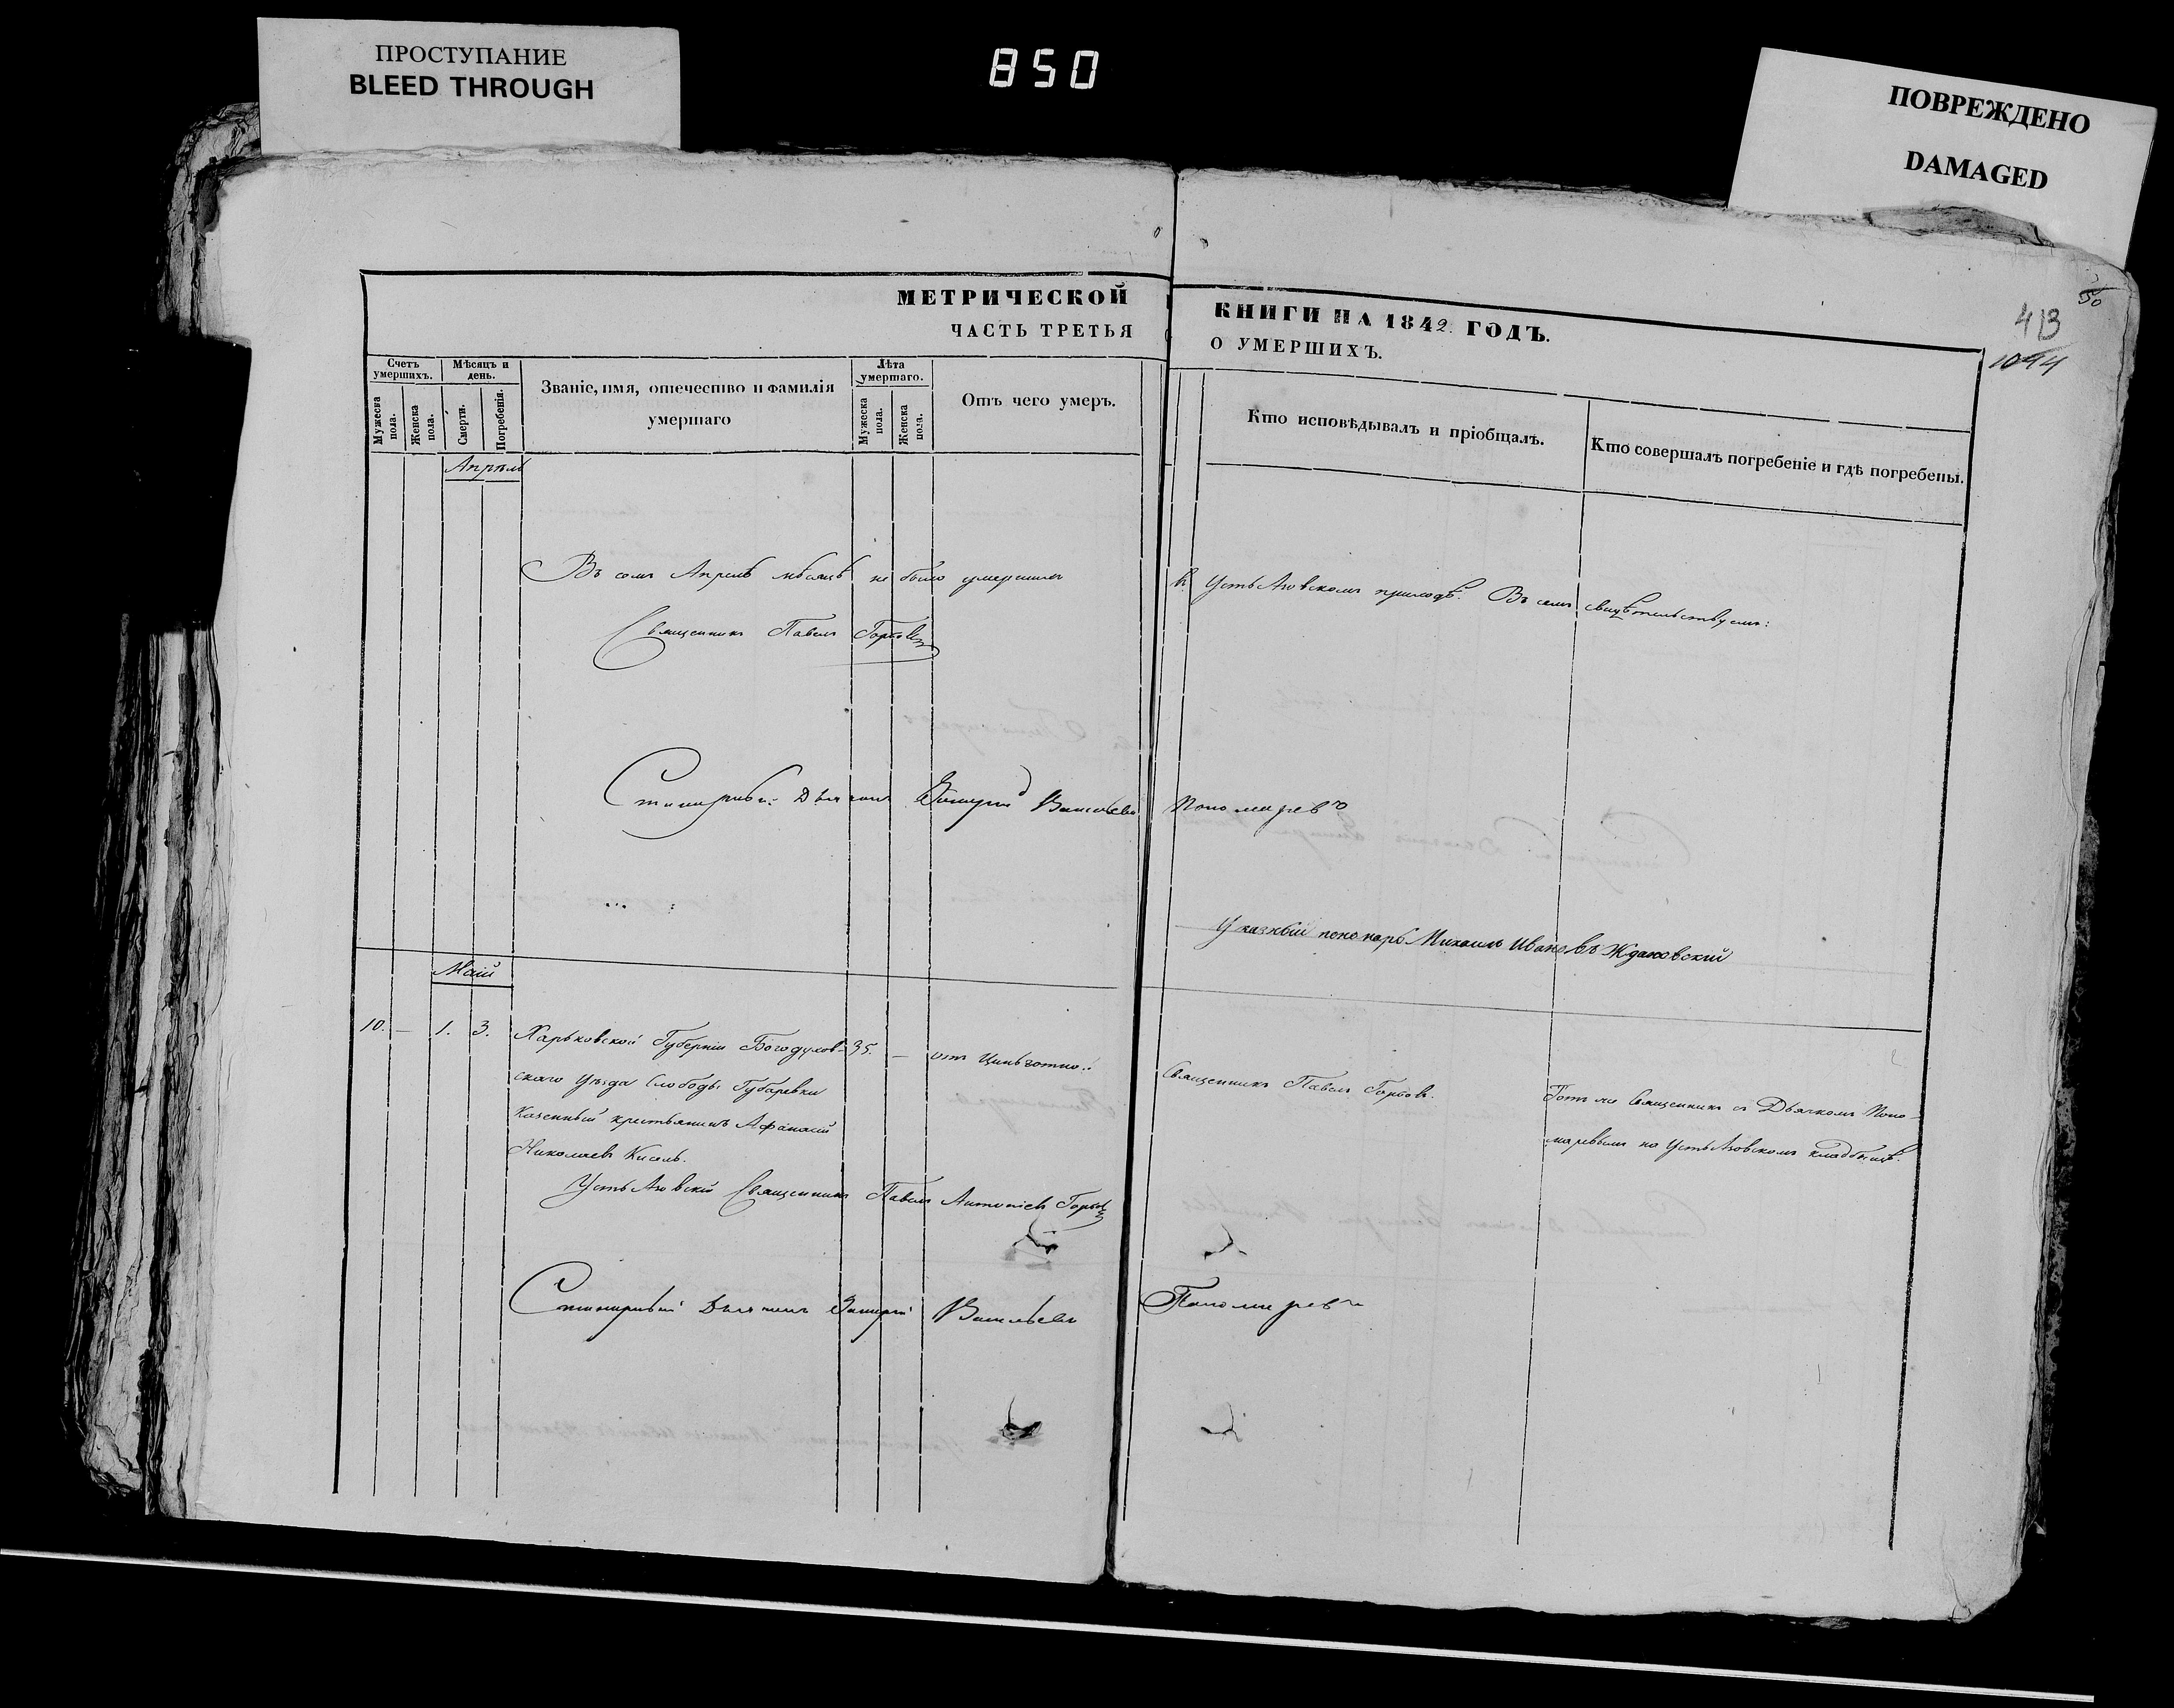 ПРОСТУПАНИЕ
BLEED THROUGH
850
ПОВРЕЖДЕНО
DAMAGED
50
413
1044
МЕТРИЧЕСКОЙ КНИГИ НА 1842. ГОДЪ.
ЧАСТЬ ТРЕТЬЯ О УМЕРШИХЪ.
Счетъ умершихъ.
Мужеска пола.
Женска пола.
Мѣсяцъ и день.
Смерти.
Погребенія.
Званіе, имя, отечество и фамилія умершаго
Лѣта умершаго.
Мужеска пола.
Женска пола.
Отъ чего умеръ.
Кто исповѣдывалъ и пріобщалъ.
Кто совершалъ погребеніе и гдѣ погребены.
Апрѣль
Въ семъ Апрѣлѣ мѣсяцѣ не было умершихъ въ Усть Азовскомъ приходѣ. Въ семъ свидѣтельствуемъ:
Священникъ Павелъ Горбовъ
Дьячекъ Васильевъ Пономаревъ
Указный пономарь Михаилъ Ивановъ Ждановский
Маій
10. — 1. 3. Харьковской Губерніи Богодухов- 35. — отъ Цынготно..
скаго Уѣзда Слободы Губаревки
Казенный крестьянинъ Афанасій
Николаевъ Кисель.
Священникъ Павелъ Горбовъ.
Тотъ же Священникъ съ Дьячкомъ Поно-
маревымъ на Усть Азовскомъ кладбищѣ.
Усть Азовскій Священникъ Павелъ Антоніевъ Горбовъ
Дьячекъ Васильевъ Пономаревъ